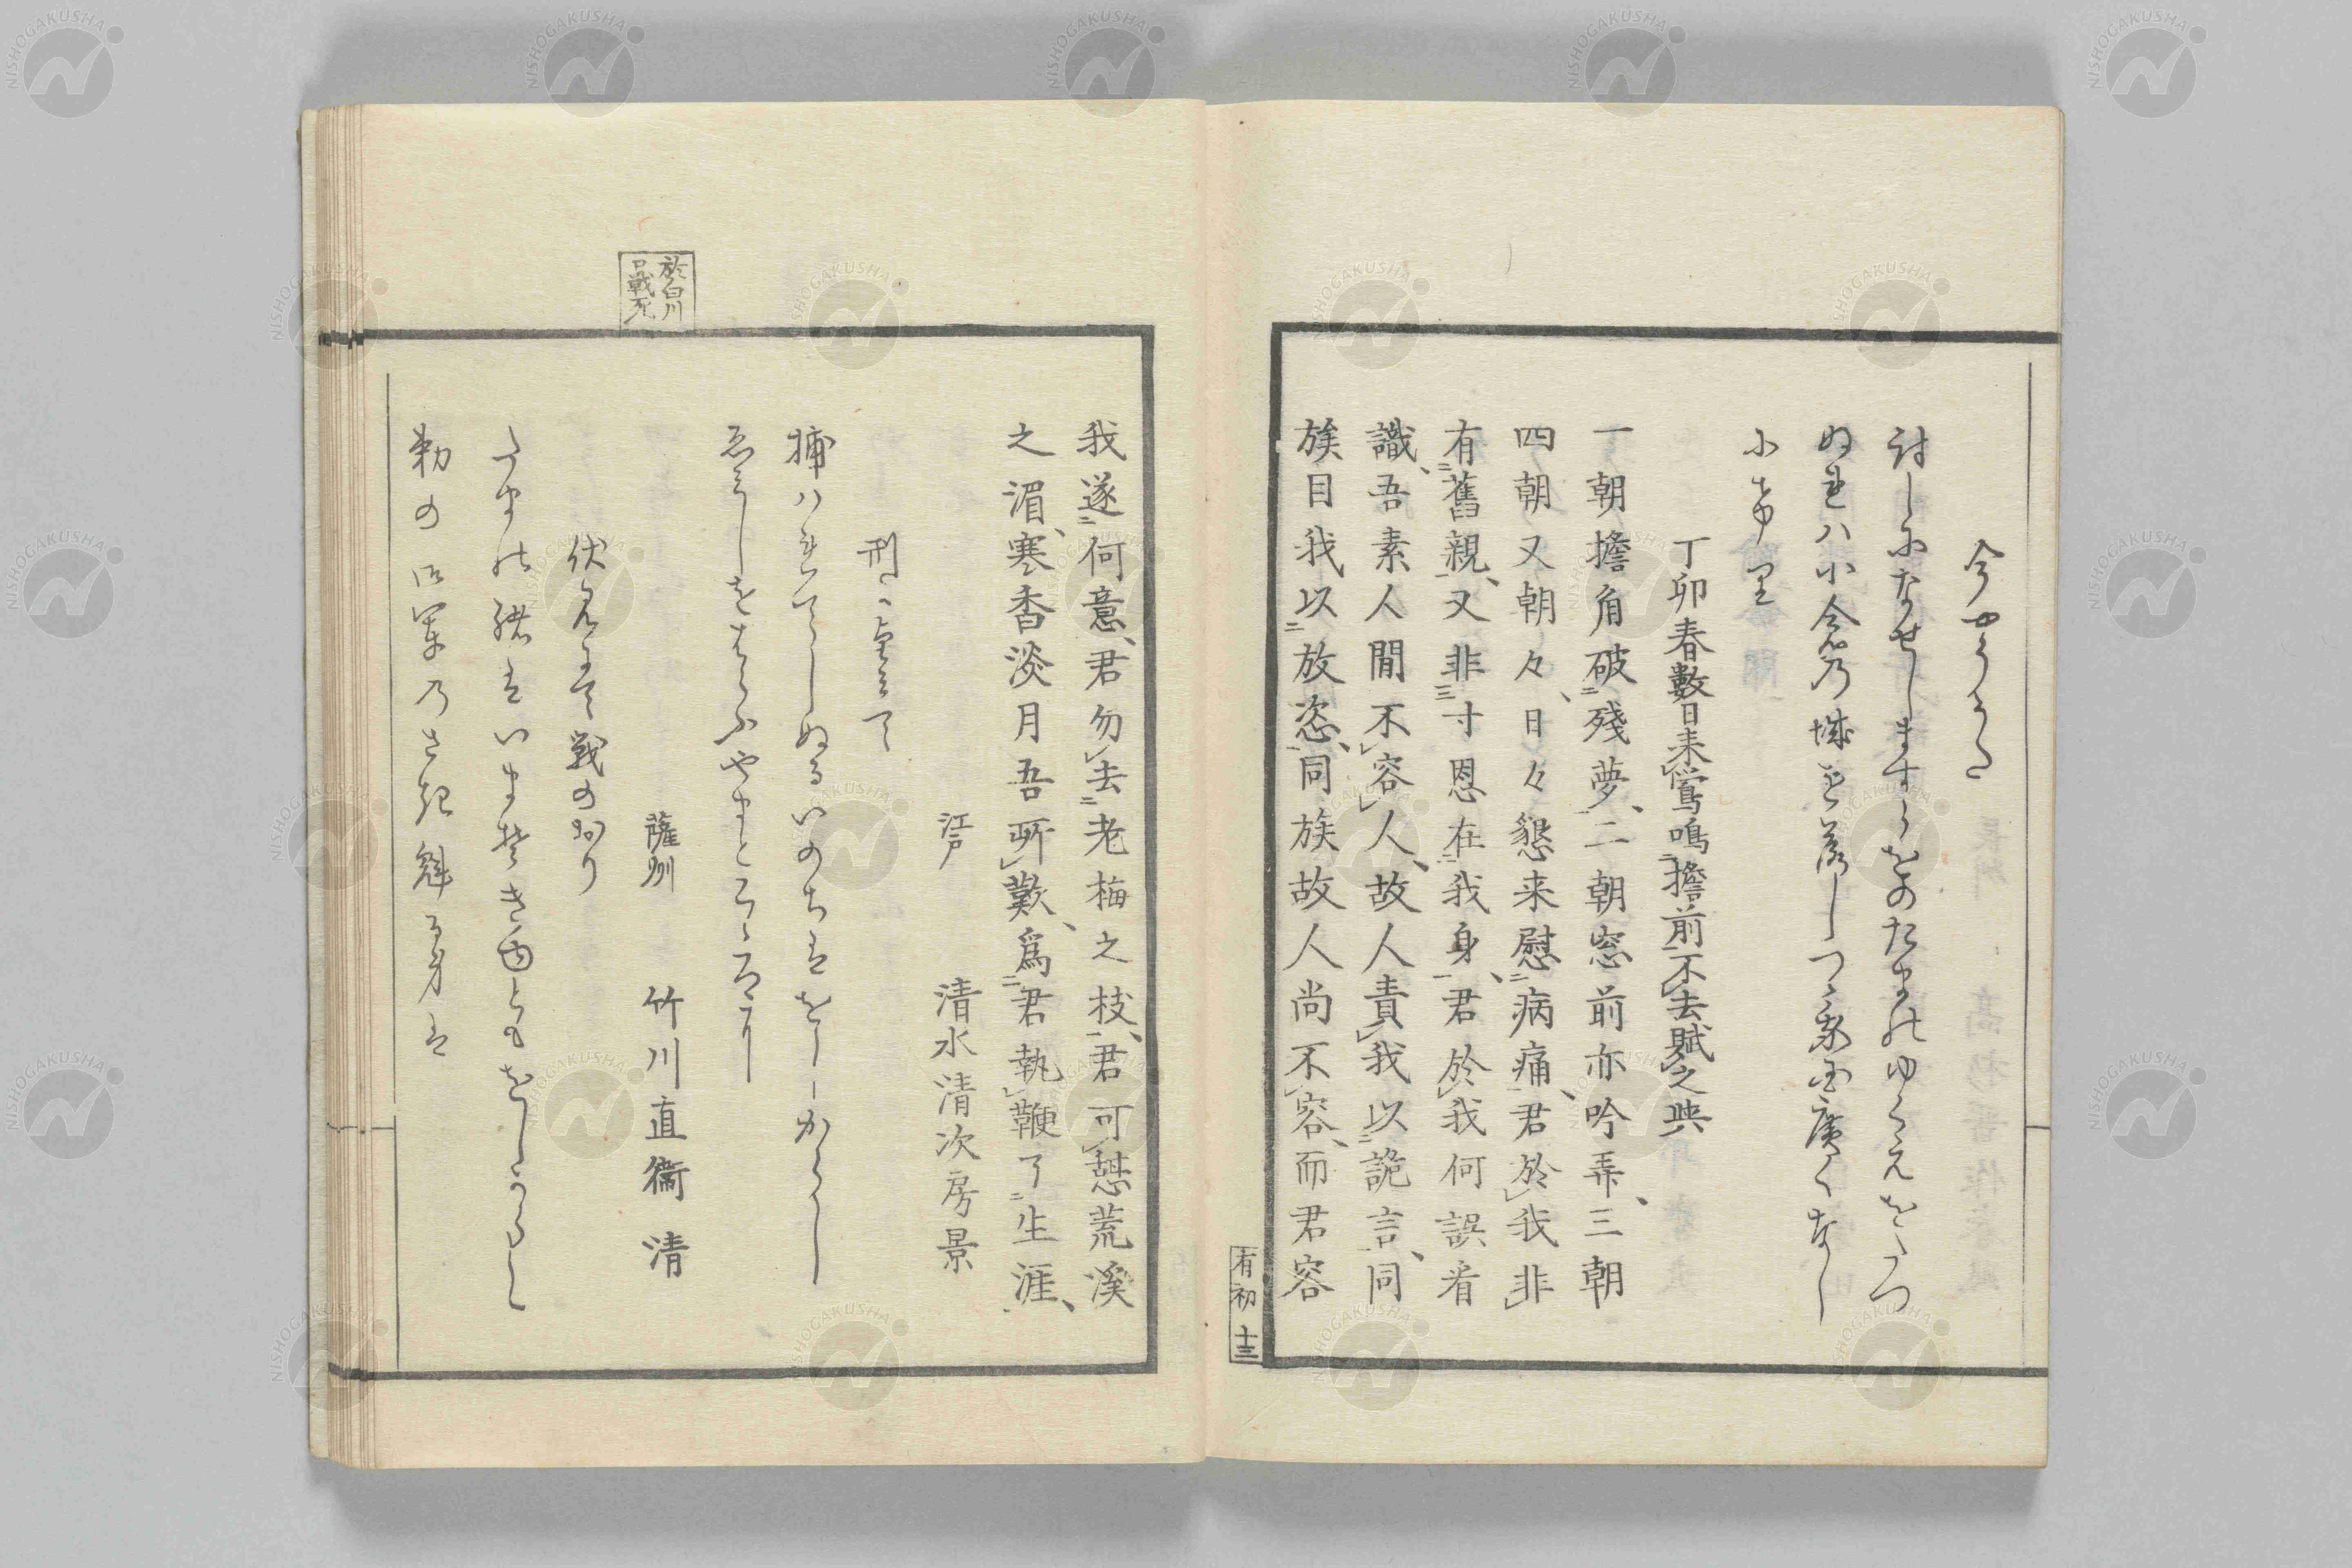 今やううた
討しになせしますらをのたまのゆくゑをこつ
ぬれハ小倉乃城を落しつゝ家国廣くなし
にけり
丁卯春數日来鶯鳴擔前不去賦之與
一朝擔角破殘夢、二朝窓前亦吟弄、三朝
四朝又朝々、日々懇来慰病痛、君於我非
有舊親、又非寸恩在我身、君於我何誤看
識、吾素人間不容人、故人責我以詭言、同
族目我以放恣、同族故人尚不容、而君容
有初 十三
我遂何意、君勿去老梅之枝、君可憩荒溪
之湄、寒香淡月吾所歎、爲君執鞭了生涯、
江戸 清水清次房景
刑に臨みて
捕ハれてしぬるいのちはをしからし
ゑみしをはらふやまとこゝろに
於白川口戦死
薩州 竹川直衞 清
伏見にて戦のおり
たまの緒はいま
勅の御軍乃さき魁る身は